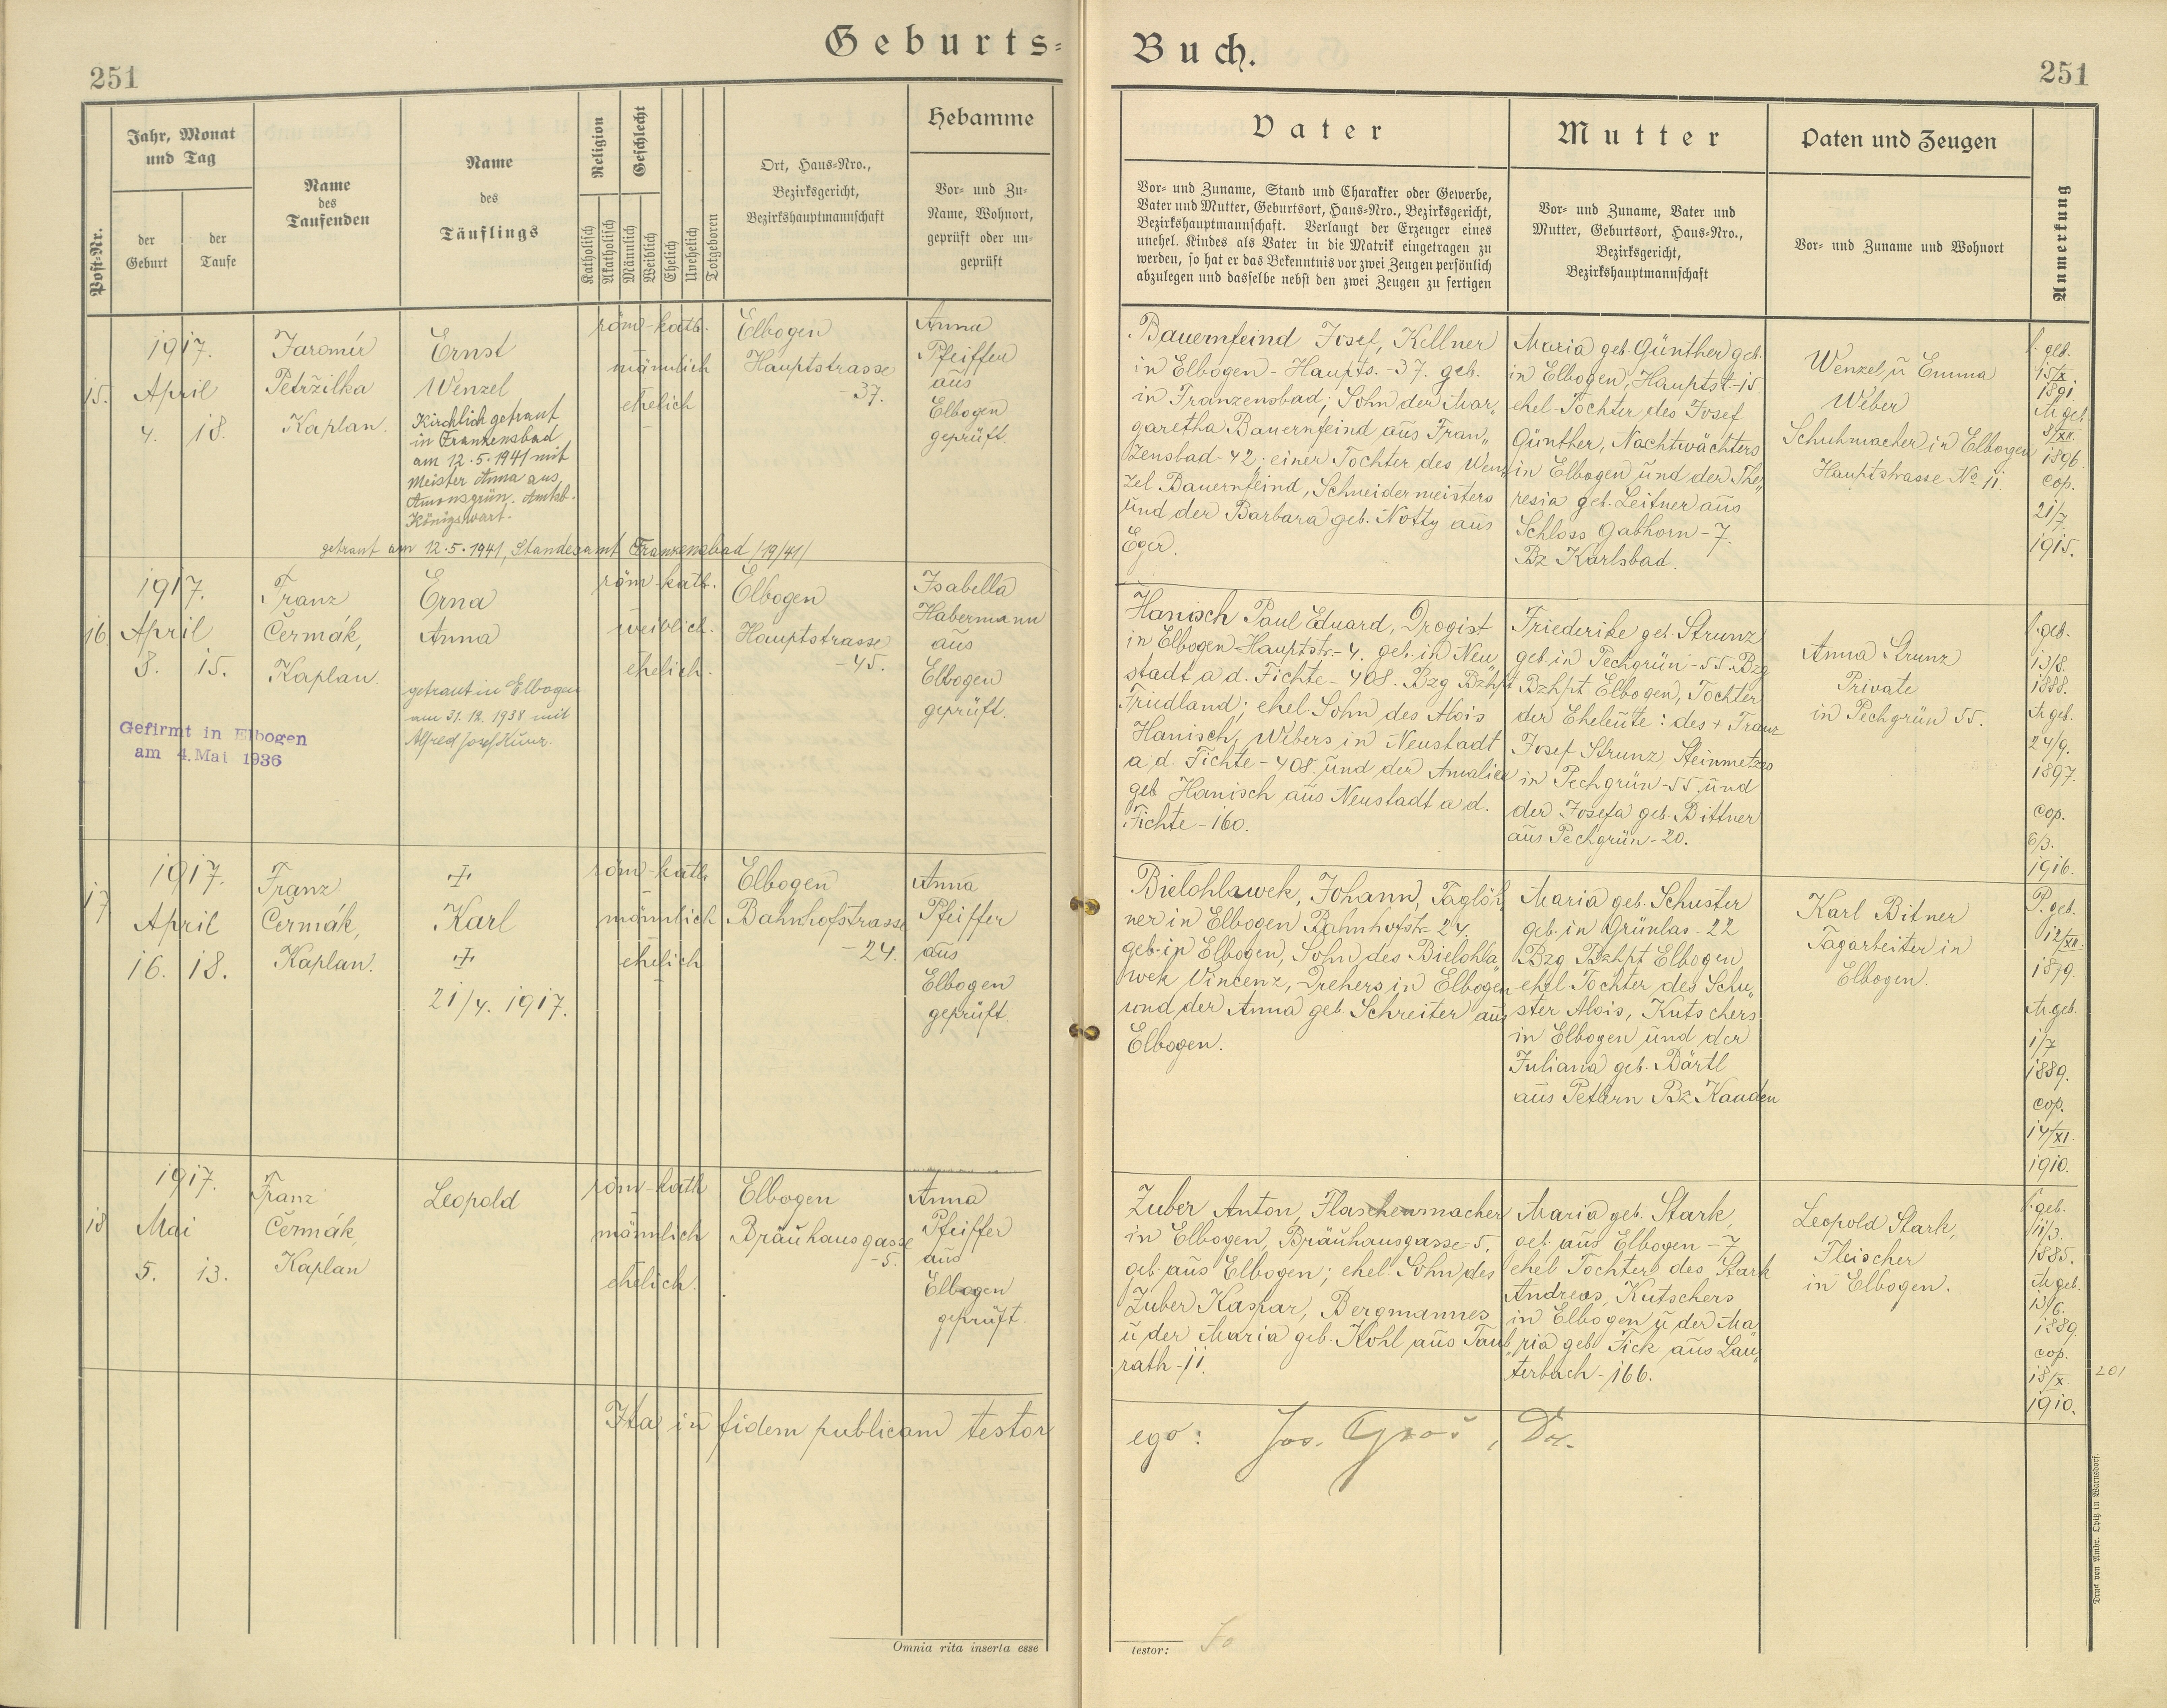 Geburts=
Buch.
251
251
Post-Nr.
Jahr, Monat
und Tag
der
Geburt
der
Taufe
Name
des
Taufenden
Name
des
Täuflings
Religion
Katholisch
Akatholisch
Geschlecht
Männlich
Weiblich
Ehelich
Unehelich
Totgeboren
Ort, Haus=Nro.,
Bezirksgericht,
Bezirkshauptmannschaft
Hebamme
Vor= und Zu=
Name, Wohnort,
geprüft oder un=
geprüft
Vater
Vor= und Zuname, Stand und Charakter oder Gewerbe,
Vater und Mutter, Geburtsort, Haus=Nro., Bezirksgericht,
Bezirkshauptmannschaft. Verlangt der Erzeuger eines
unehel. Kindes als Vater in die Matrik eingetragen zu
werden, so hat er das Bekenntnis vor zwei Zeugen persönlich
abzulegen und dasselbe nebst den zwei Zeugen zu fertigen
Mutter
Vor= und Zuname, Vater und
Mutter, Geburtsort, Haus=Nro.,
Bezirksgericht,
Bezirkshauptmannschaft
Paten und Zeugen
Vor= und Zuname und Wohnort
Anmerkung
15.
1917.
April
4. 18.
Jaromír
Petržilka
Kaplan.
Ernst
Wenzel
Kirchlich getraut
in Frankensbad
am 12.5.1941 mit
Meister Anna aus
Amonsgrün. Amtsb.
Königswart.
getraut am 12.5.1941, Standesamt Franzensbad /19/41/
röm-kath.
männlich
ehelich
Elbogen
Hauptstrasse
-37.
Anna
Pfeiffer
aus
Elbogen
geprüft.
Bauernfeind Josef, Kellner
in Elbogen - Haupts. -37. geb.
in Franzensbad; Sohn der Mar„
garetha Bauernfeind aus Fran„
zensbad-42; einer Tochter des Wen„
zel Bauernfeind, Schneidermeisters
und der Barbara geb. Notty aus
Eger.
Maria geb. Günther geb.
in Elbogen, Hauptst-15
ehel. Tochter des Josef
Günther, Nachtwächters
in Elbogen und der The„
resia geb. Leitner aus
Schloss Gabhorn-7.
Bz Karlsbad.
Wenzel u Emma
Weber
Schuhmacher in Elbogen
Hauptstrasse No 11
P. geb.
15/X
1891.
M geb.
8/XII.
1896.
cop.
21/7.
1915.
16.
1917.
April
8. 15.
Franz
Čermák,
Kaplan.
Erna
Anna
getraut in Elbogen
am 31.12.1938 mit
Alfred Josef Kunz.
Gefirmt in Elbogen
am 4. Mai 1936
röm-kath.
weiblich.
ehelich.
Elbogen
Hauptstrasse
-45.
Isabella
Habermann
aus
Elbogen
geprüft.
Hanisch Paul Eduard, Drogist
in Elbogen Hauptstr.-4. geb. in Neu„
stadt a d. Fichte-408. Bzg Bzhpt
Friedland; ehel. Sohn des Alois
Hanisch, Webers in Neustadt
a/d. Fichte-408. und der Amalie
geb Hanisch aus Neustadt a d.
Fichte-160.
Friederike geb. Strunz
geb in Pechgrün-55. Bzg
Bzhpt Elbogen, Tochter
der Eheleute: des + Franz
Josef Strunz, Steinmetzes
in Pechgrün-55. und
der Josefa geb. Bittner
aus Pechgrün-20.
Anna Strunz
Private
in Pechgrün 55.
P. geb.
13/8.
1888.
M geb.
24/9.
1897.
cop.
6/3.
1916.
17
1917.
April
16. 18.
Franz
Čermák,
Kaplan.
+
Karl
+
21/4. 1917.
röm-kath.
männlich
ehelich
Elbogen
Bahnhofstrasse
-24.
Anna
Pfeiffer
aus
Elbogen
geprüft.
Bielohlawek, Johann, Taglöh„
ner in Elbogen Bahnhofstr-24.
geb. in Elbogen, Sohn des Bielohla„
wek Vincenz, Drehers in Elbogen
und der Anna geb. Schreiter aus
Elbogen.
Maria geb. Schuster
geb. in Grünlas-22
Bzg Bzhpt Elbogen
ehel Tochter des Schu„
ster Alois, Kutschers
in Elbogen und der
Juliana geb. Bärtl
aus Petlern Bz Kaaden
Karl Bitner
Tagarbeiter in
Elbogen.
P. geb.
12/XII
1879.
M geb.
1/7
1889.
cop.
14/XI.
1910.
18
1917.
Mai
5. 13.
Franz
Čermák,
Kaplan
Leopold
röm-kath
männlich
ehelich.
Elbogen
Bräuhausgasse
-5.
Anna
Pfeiffer
aus
Elbogen
geprüft.
Zuber Anton, Flaschenmacher
in Elbogen, Bräuhausgasse-5.
geb. aus Elbogen; ehel. Sohn des
Zuber Kaspar, Bergmannes
u der Maria geb. Kohl aus Taub„
rath-11.
Maria geb. Stark,
geb. aus Elbogen-7
ehel Tochter des Stark
Andreas, Kutschers
in Elbogen u der Ma„
ria geb. Tick aus Lau„
terbach-166.
Leopold Stark,
Fleischer
in Elbogen.
P. geb.
11/3.
1885.
M geb.
13/6.
1889
cop.
18/X.
1910.
201
Ita in fidem publicam testor
ego: Jos. Groš, Dec.
Omnia rita inserta esse
testor: Jo
Druck von Ambr. Opitz in Warnsdorf.